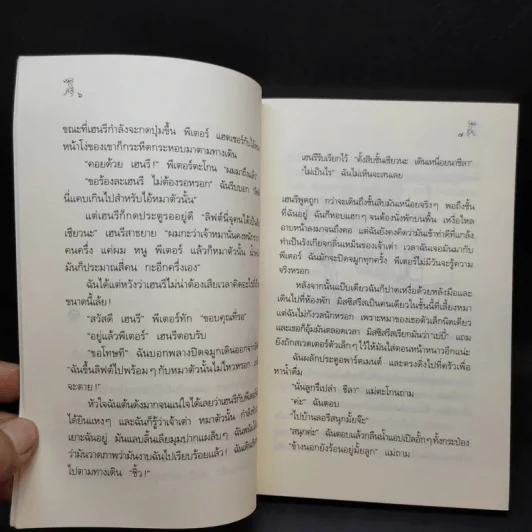 ๖
ขณะที่เฮนรีกำลังจะกดปุ่มขึ้น พีเตอร์ แฮตเชอร์กับไอ้หมา
หน้าโง่ของเขาก็กระหืดกระหอบมาตามทางเดิน
"คอยด้วย เฮนรี!" พีเตอร์ตะโกน "ผมมาถึงแล้ว"
"ขอร้องละเฮนรี ไม่ต้องรอหรอก" ฉันรีบบอก
นี่แคบเกินไปสำหรับไอ้หมาตัวนั้น"
แต่เฮนรีก็กดประตูรออยู่ดี "ลิฟต์นี่จุคนได้เป็น
เชียวนะ" เฮนรีสาธยาย "ผมกะว่าเจ้าหมานั่นคงหนัก
คนครึ่ง แต่ผม หนู พีเตอร์ แล้วก็หมาตัวนั้น
มันก็ประมาณสี่คน กะอีกครึ่งเอง"
ฉันได้แต่หวังว่าเฮนรีไม่น่าต้องเสียเวลาคิดอะไร
ขนาดนี้เลย!
"สวัสดี เฮนรี" พีเตอร์ทัก "ขอบคุณที่รอ"
"อยู่แล้วพีเตอร์" เฮนรีตอบรับ
"ขอโทษที" ฉันบอกพลางปิดจมูกเดินออกจาก
"ฉันขึ้นลิฟต์ไปพร้อมๆ กับหมาตัวนั้นไม่ไหวหรอก
จะตาย!"
หัวใจฉันเต้นดังมากจนแน่ใจได้เลยว่าเฮนรีกับพีเตอร์
ได้ยินแหงๆ และฉันก็รู้ว่าเจ้าเต่า หมาตัวนั้น กำลังหัว
เยาะฉันอยู่ มันแลบลิ้นเลียมุมปากแผล็บๆ
ว่ามันวาดภาพว่ามันงาบฉันไปเรียบร้อยแล้ว!
ไปตามทางเดิน "ชิ้ว!"
๗
เฮนรีรีบเรียกไว้ "ตั้งสิบชั้นเชียวนะ เดินเหนื่อยนาชีลา"
"ไม่เป็นไร" ฉันไม่เห็นจะสนเลย
เฮนรีพูดถูก กว่าจะเดินถึงชั้นสิบมันเหนื่อยจริงๆ พอถึงชั้น
ที่ฉันอยู่ ฉันก็หอบแฮกๆ จนต้องนั่งพักบนพื้น เหงื่อไหล
อาบหน้าลงมาจนถึงคอ แต่ฉันยังคงคิดว่ามันเข้าท่าดีที่แกล้ง
ทำเป็นรังเกียจกลิ่นเหม็นของเจ้าเต่า เวลาฉันเจอมันมากับ
พีเตอร์ ฉันมักจะปิดจมูกทุกครั้ง พีเตอร์ไม่มีวันจะรู้ความ
จริงหรอก
หลังจากนั้นแป๊บเดียวฉันก็ปาดเหงื่อด้วยหลังมือและ
เดินไปที่ห้องพัก
แต่ฉันไม่กังวลนักหรอก เพราะหมาของเธอตัวเล็กนิดเดียว
และเธอก็อุ้มมันตลอดเวลา มิสซิสรีสเรียกมันว่า"เบบี้" แถม
ยังถักสเวตเตอร์ตัวเล็กๆ ไว้ให้มันใส่ตอนหน้าหนาวอีกแน่ะ
ฉันผลักประตูอพาร์ตเมนต์ และตรงดิ่งไปที่ครัวเพื่อ
หาน้ำดื่ม
"นั่นลูกรึเปล่า ชีลา" แม่ตะโกนถาม
"ค่ะ" ฉันตอบ
"ไปบ้านลอรีสนุกมั้ยจ๊ะ"
"สนุกค่ะ" ฉันตอบแล้วกลืนน้ำแอปเปิลอั้กๆทั้งกระป๋อง
"ข้างนอกยังร้อนอยู่มั้ยลูก" แม่ถาม